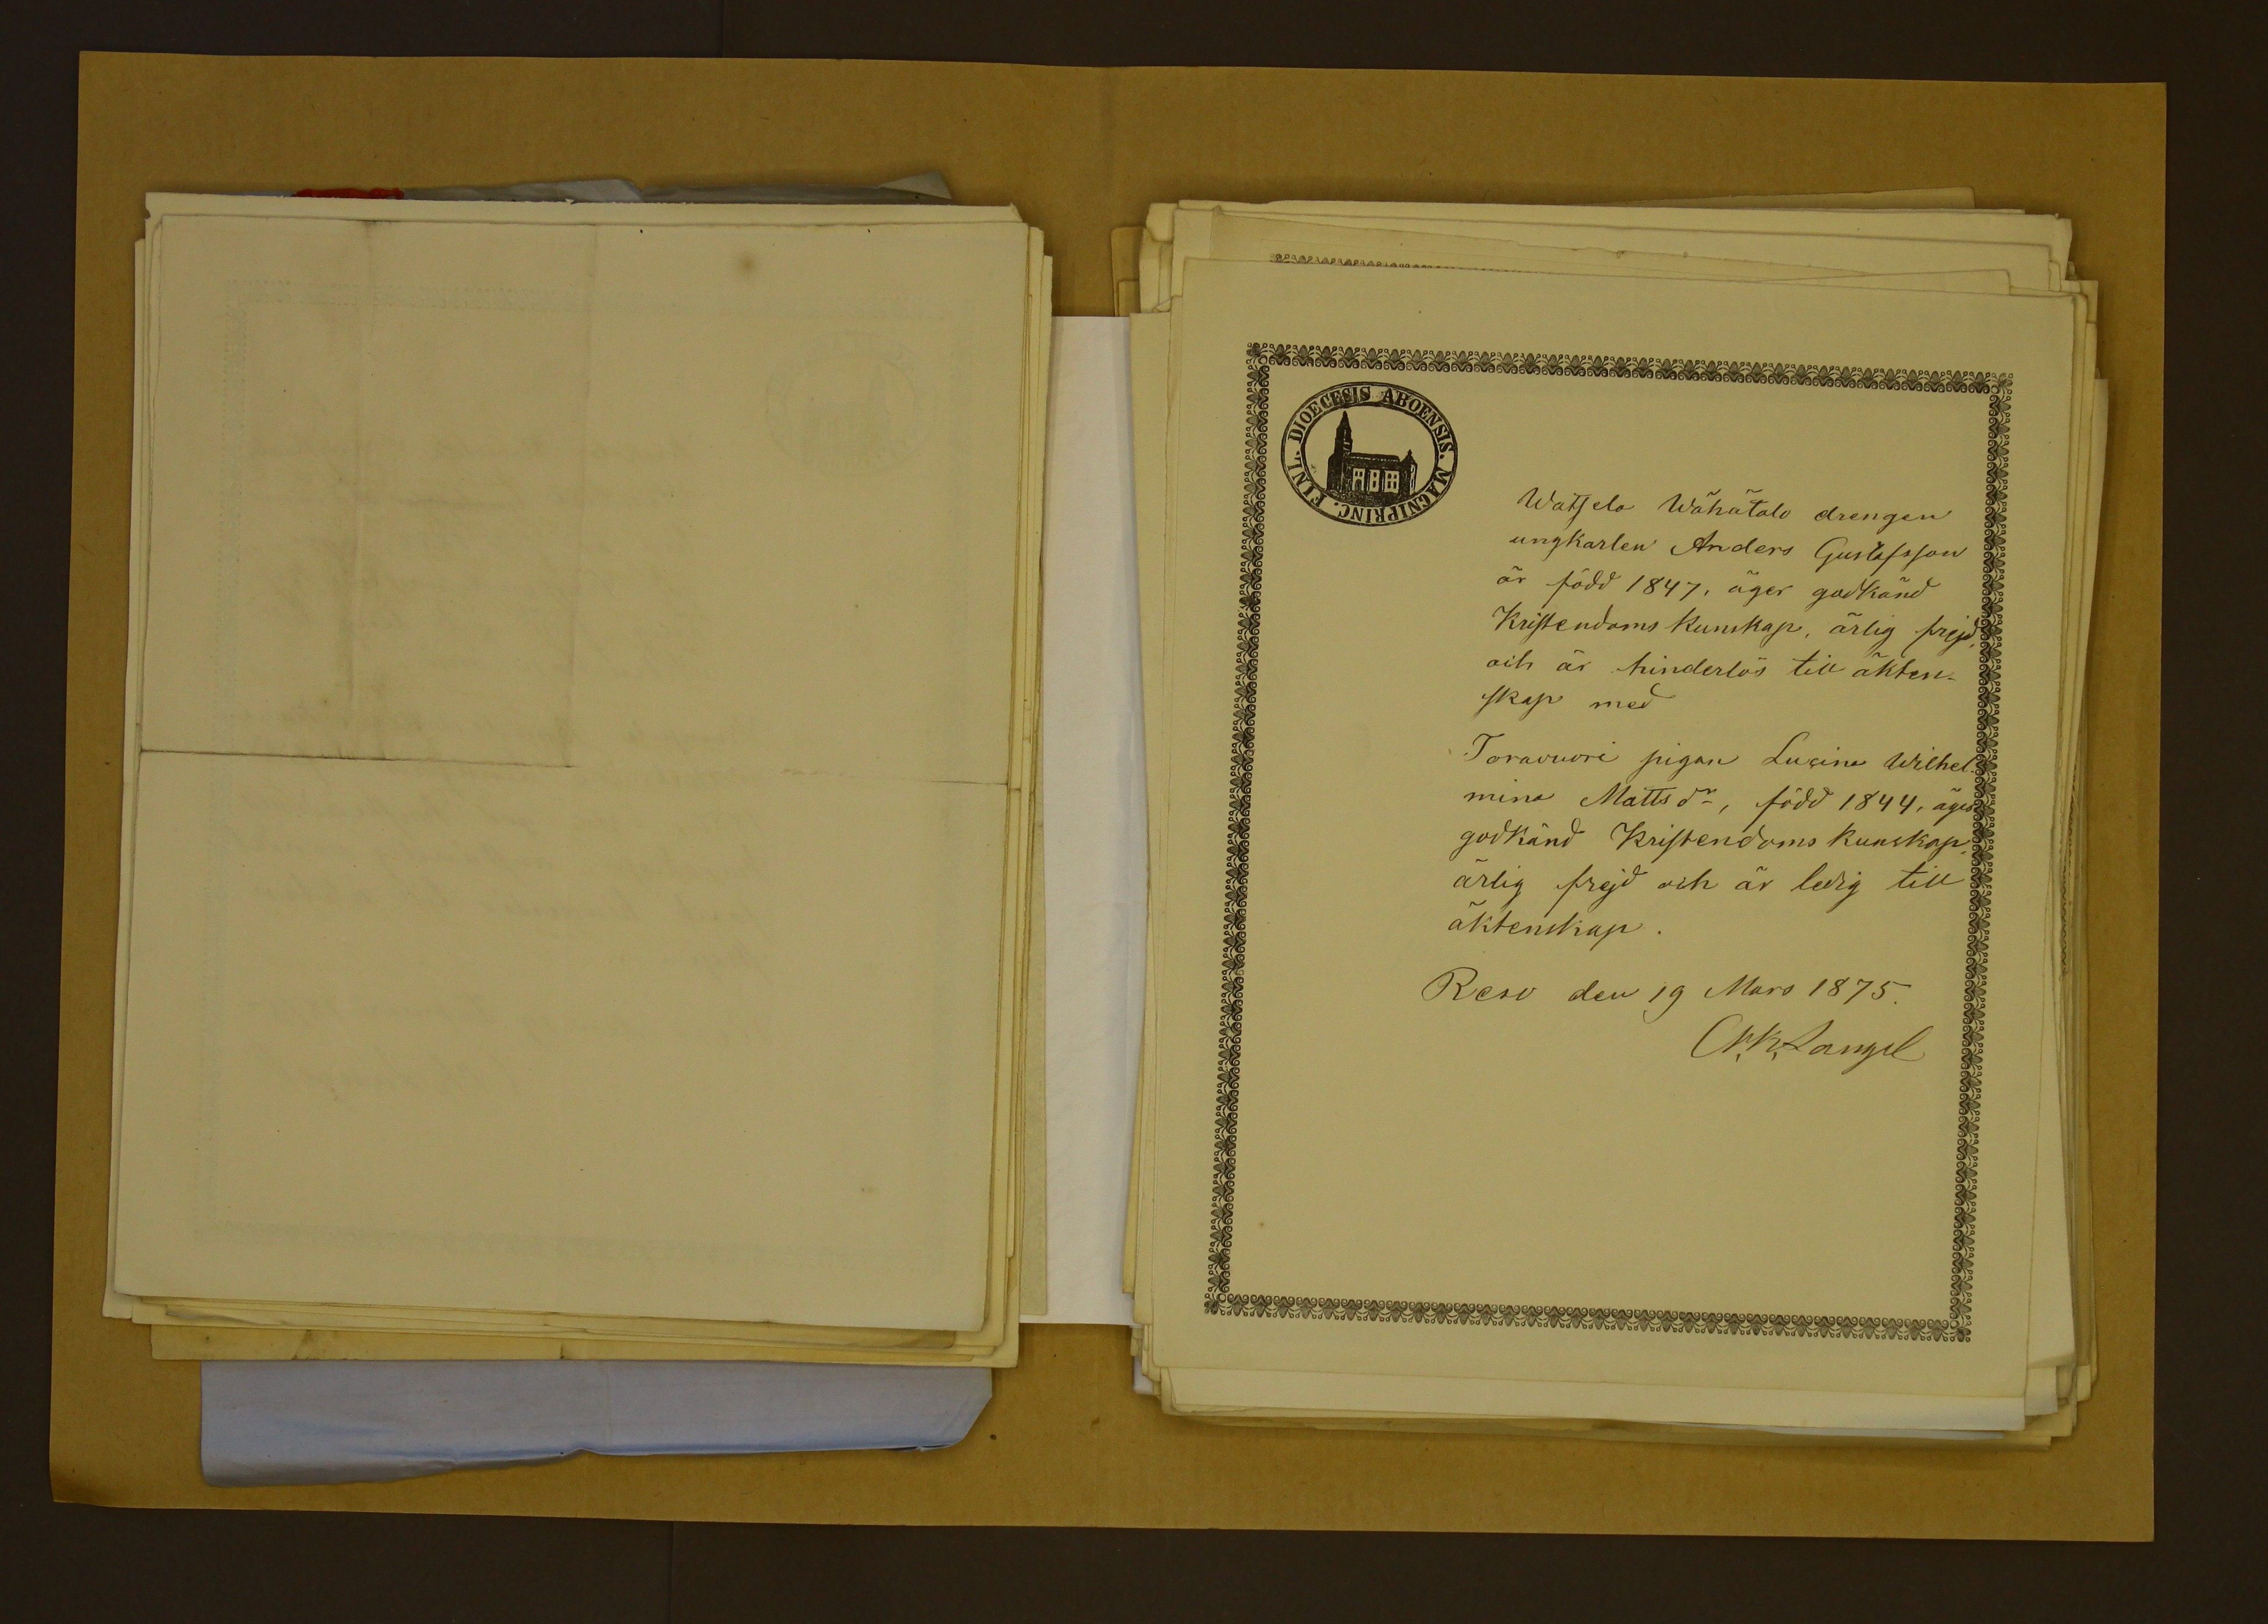 DIOECESIS ABOENSIS. MAGNIPRINC. FINL.
Watsela Wähätalo drengen
ungkarlen Anders Gustafsson
är född 1847, äger godkänd
Kristendoms kunskap, ärlig frejd,
och är hinderlös till äkten-
skap med
Toravuori pigan Lucina Wilhel-
mina Mattsdr, född 1844, äger
godkänd Kristendoms kunskap,
ärlig frejd och är ledig till
äktenskap.
Reso den 19 Mars 1875.
K. Langel